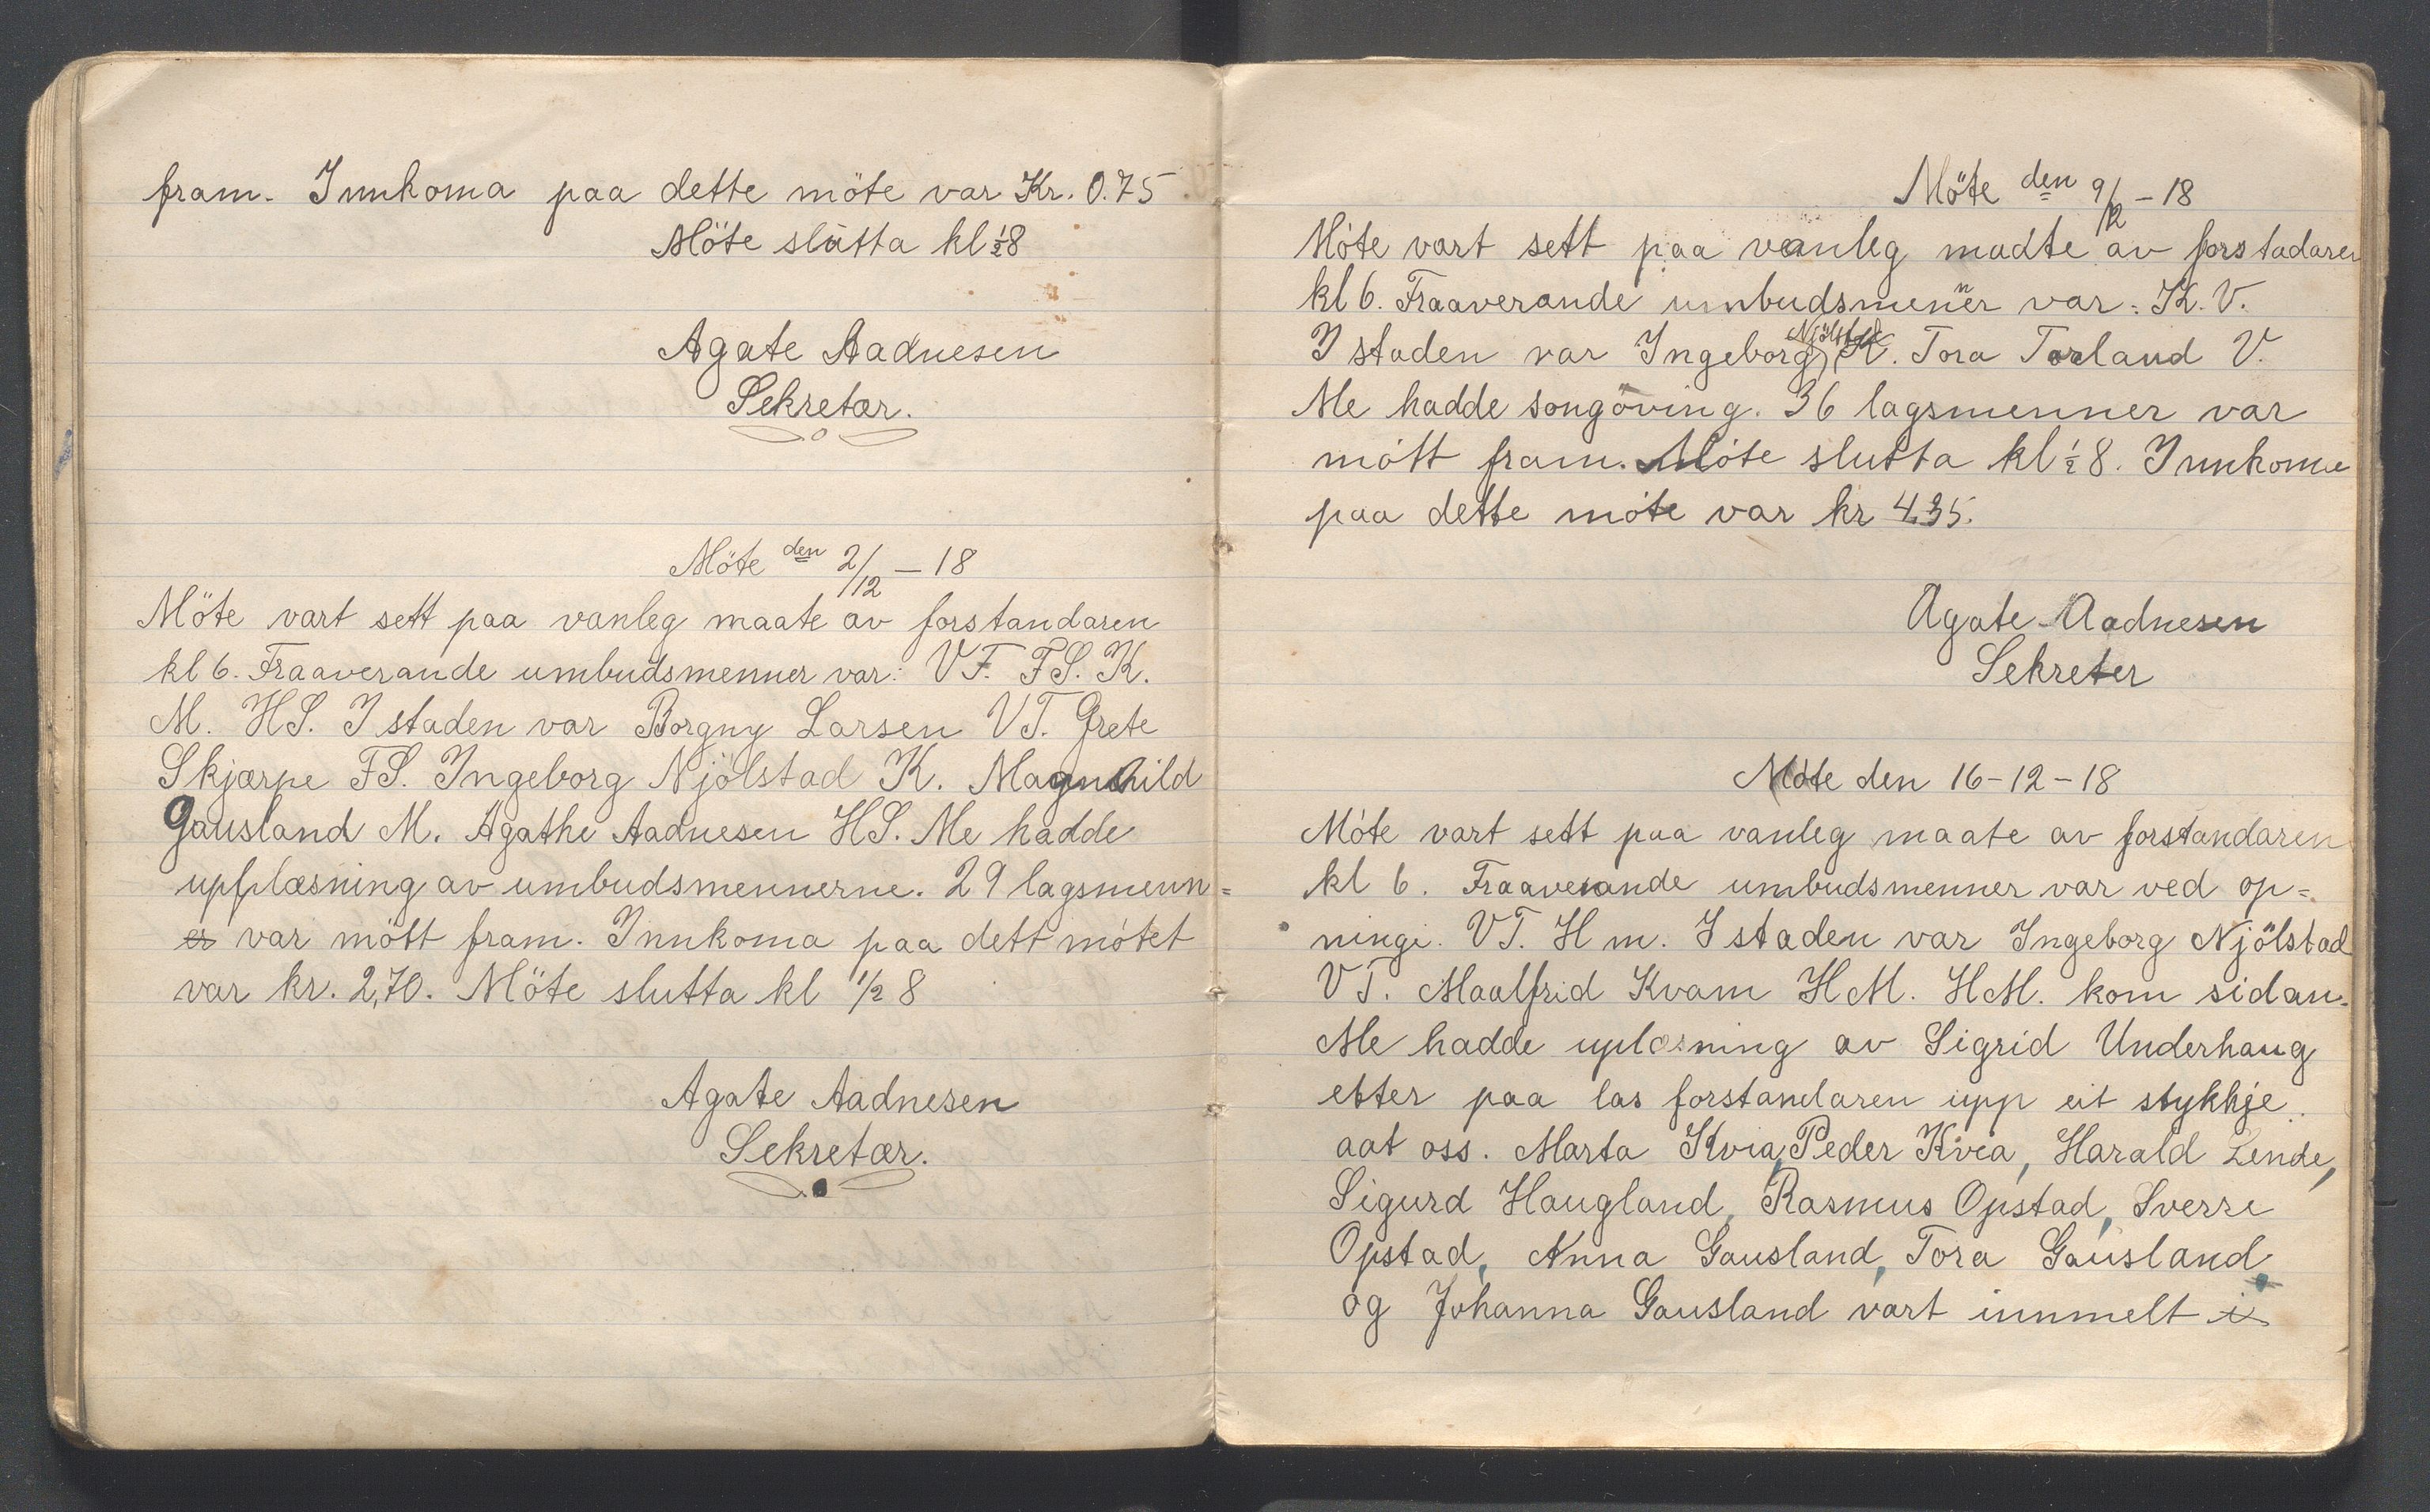 fram. Innkoma paa dette möte var Kr. 0.75
Möte slutta kl ½8
Agate Aadnesen
Sekretær.
Möte den 2/12 – 18
Möte vart sett paa vanleg maate av forstandaren
kl 6. Fraaverande umbudsmenner var: V.T. F.S. K.
M. H.S. I staden var Borgny Larsen V.T. Grete
Skjærpe F.S. Ingeborg Njölstad K. Magnhild
Gausland M. Agathe Aadnesen H.S. Me hadde
upplæsning av umbudsmennerne. 29 lagsmenn=
er var mött fram. Innkoma paa dett mötet
var kr. 2,70. Möte slutta kl ½ 8
Agate Aadnesen
Sekretær.
Möte den 9/12 – 18
Möte vart sett paa vanleg maate av forstadaren
kl 6. Fraaverande umbudsmenner var: K. V.
I staden var Ingeborg Njölstad K. Tora Torland V.
Me hadde songöving. 36 lagsmenner var
mött fram. Möte slutta kl ½ 8. Innkoma
paa dette möte var kr 4,35.
Agate Aadnesen
Sekreter
Möte den 16-12-18
Möte vart sett paa vanleg maate av forstandaren
kl 6. Fraaverande umbudsmenner var ved op=
ningi. V.T. H m. I staden var Ingeborg Njölstad
V.T. Maalfrid Kvam H.M. H.M. kom sidan.
Me hadde uplæsning av Sigrid Underhaug
etter paa las forstandaren upp eit stykkje
aat oss. Marta Kvia, Peder Kvia, Harald Lende,
Sigurd Haugland, Rasmus Opstad, Sverre
Opstad, Anna Gausland, Tora Gausland
og Johanna Gausland vart innmelt i